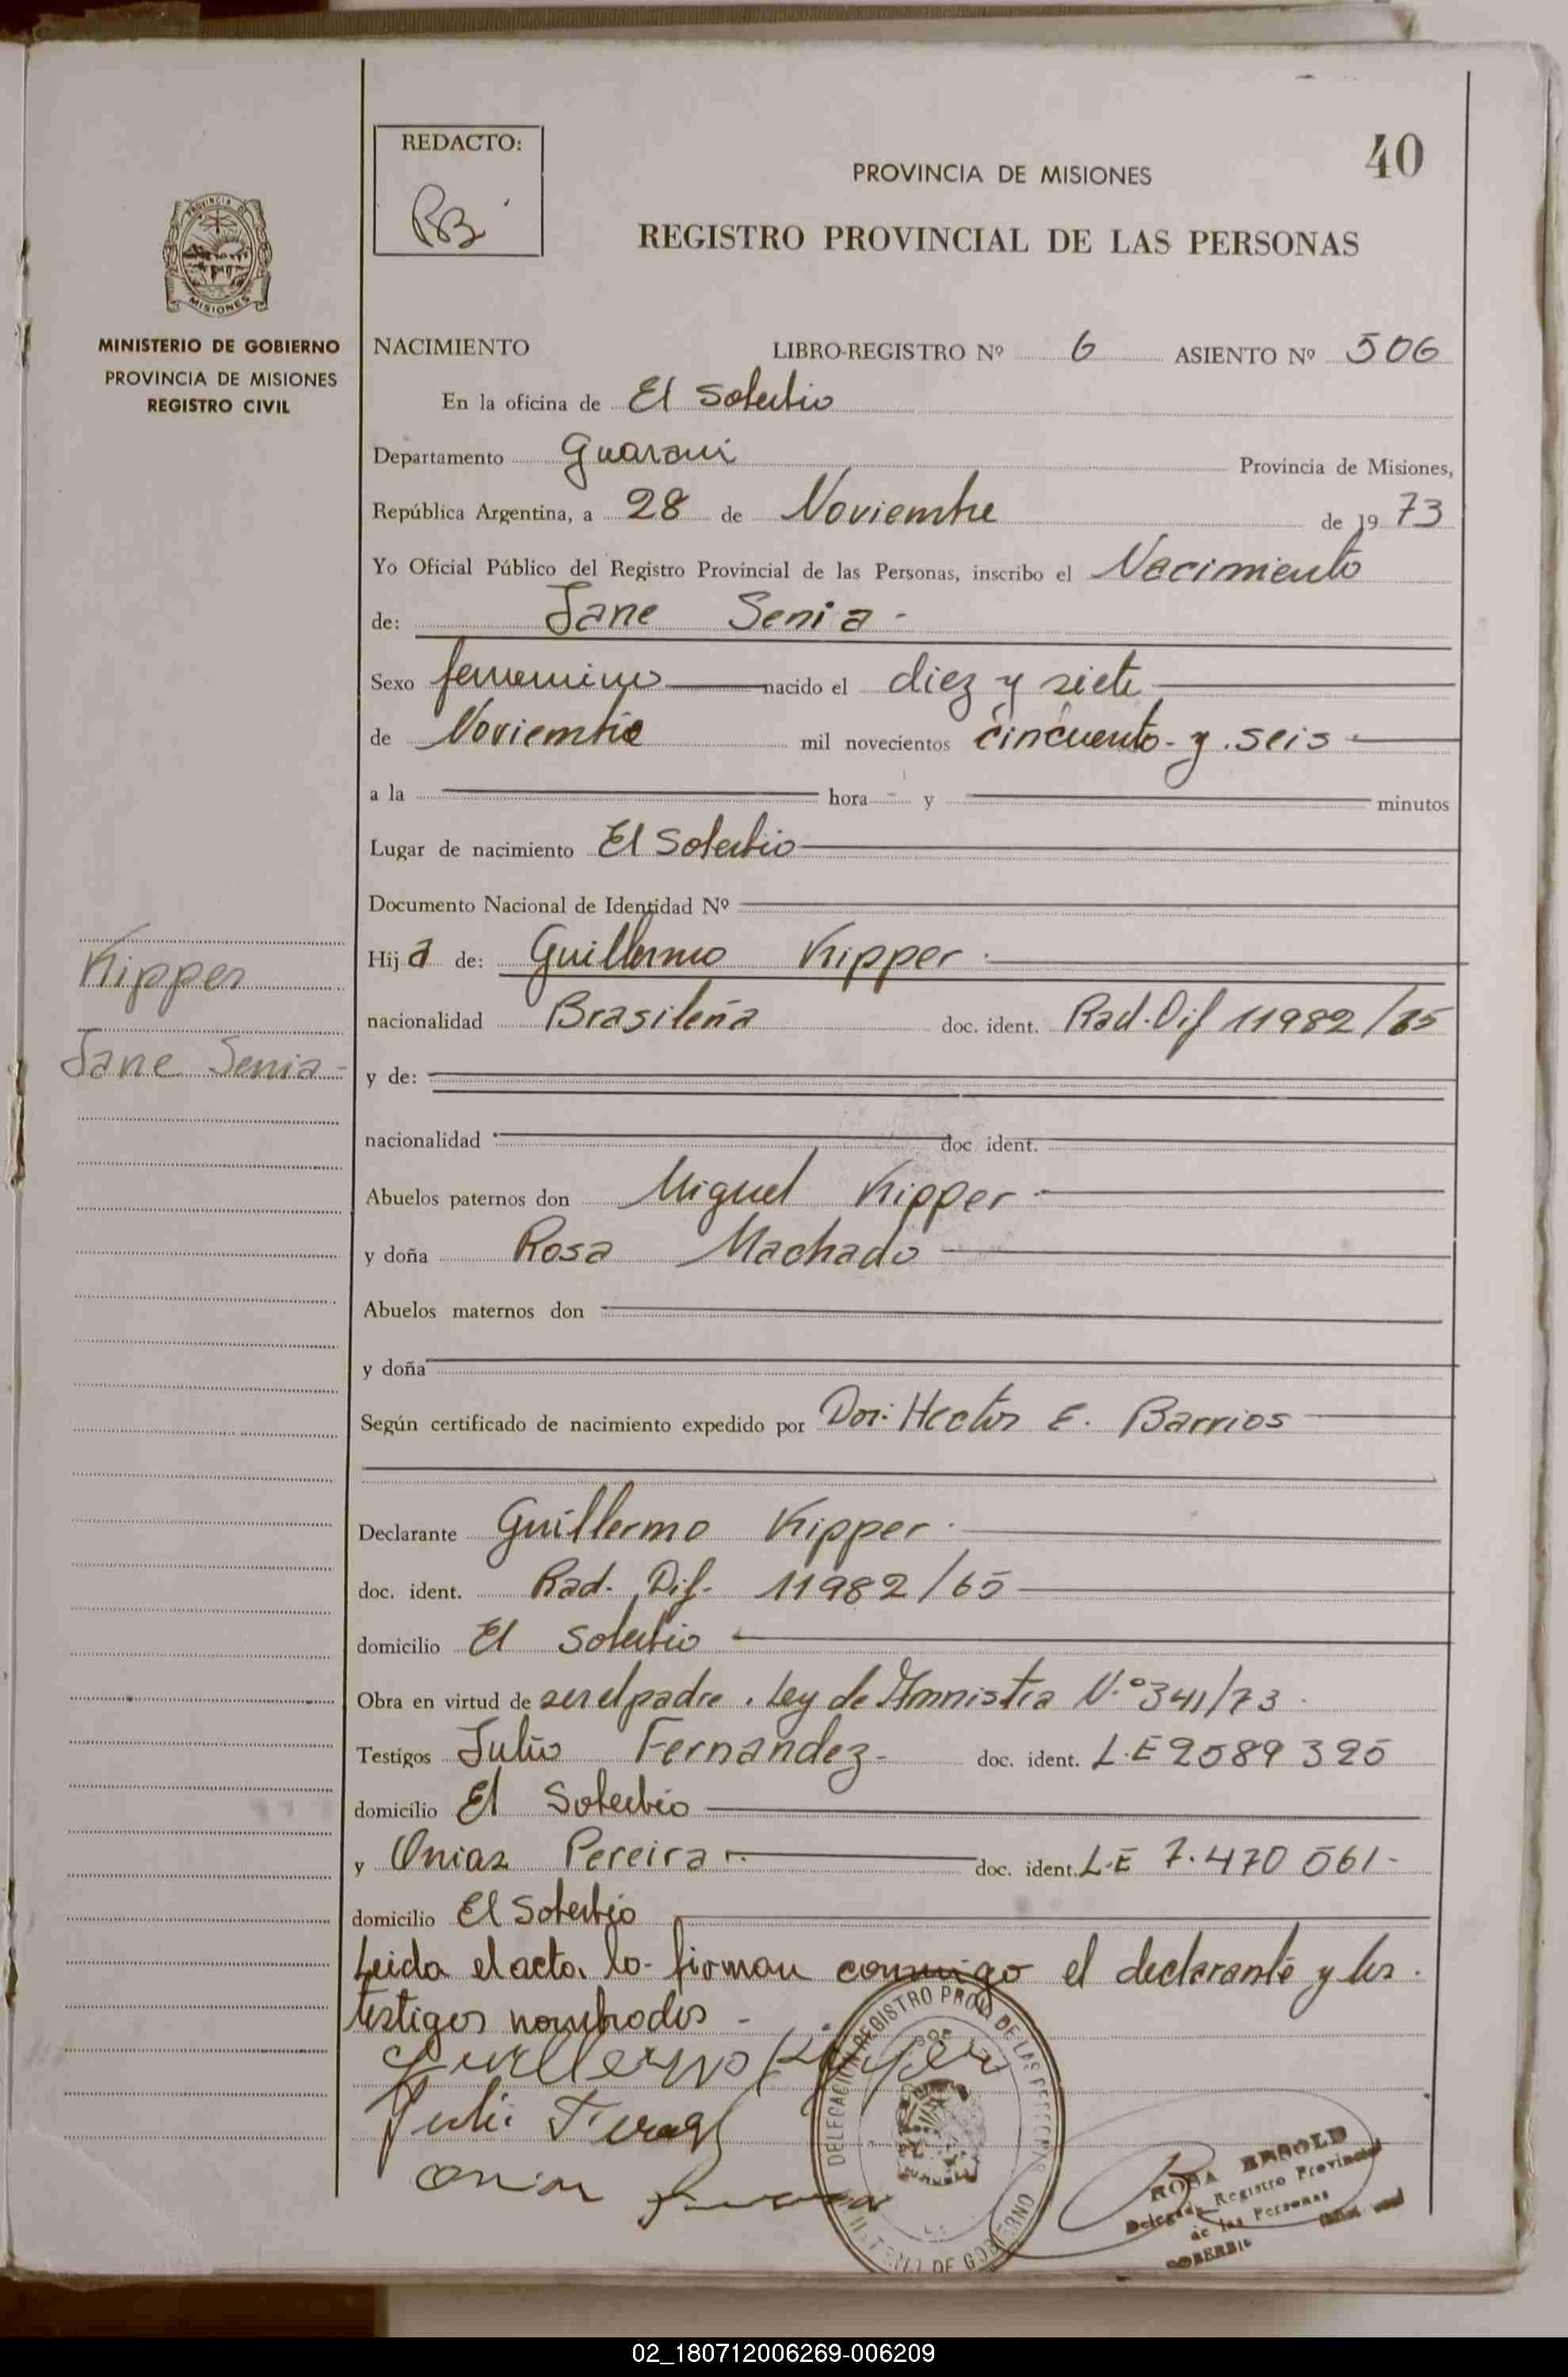 REDACTO:
40
PROVINCIA DE MISIONES
REGISTRO PROVINCIAL DE LAS PERSONAS
PROVINCIA DE
MISIONES
MINISTERIO DE GOBIERNO
PROVINCIA DE MISIONES
REGISTRO CIVIL
NACIMIENTO LIBRO-REGISTRO Nº 6 ASIENTO Nº 506
En la oficina de El Soberbio
Departamento Guarani Provincia de Misiones,
República Argentina, a 28 de Noviembre de 1973
Yo Oficial Público del Registro Provincial de las Personas, inscribo el Nacimiento
de: Jane Senia -
Sexo femenino nacido el diez y siete
de Noviembre mil novecientos cincuenta y seis
a la hora y minutos
Lugar de nacimiento El Soberbio
Documento Nacional de Identidad Nº
Hija de: Guillermo Kipper
Kipper
nacionalidad Brasileña doc. ident. Rad. Dif 11982/65
Jane Senia -
y de:
nacionalidad doc. ident.
Abuelos paternos don Miguel Kipper
y doña Rosa Machado
Abuelos maternos don
y doña
Según certificado de nacimiento expedido por Dor. Hector E. Barrios
Declarante Guillermo Kipper
doc. ident. Rad. Dif. 11982/65
domicilio El Soberbio
Obra en virtud de ser el padre. Ley de Amnistia N.º 341/73
Testigos Julio Fernandez - doc. ident. L.E 2589 325
domicilio El Soberbio
y Onias Pereira doc. ident. L.E 7.470 561 -
domicilio El Soberbio
Leida el acta, lo firman conmigo el declarante y los
testigos nombrados -
Guillermo Kipper
DELEGACION REGISTRO PROV. DE LAS PERSONAS
MINISTERIO DE GOBIERNO
ROSA ARNOLD
Delegada Registro Provincial
de las Personas
SOBERBIO
02_180712006269-006209